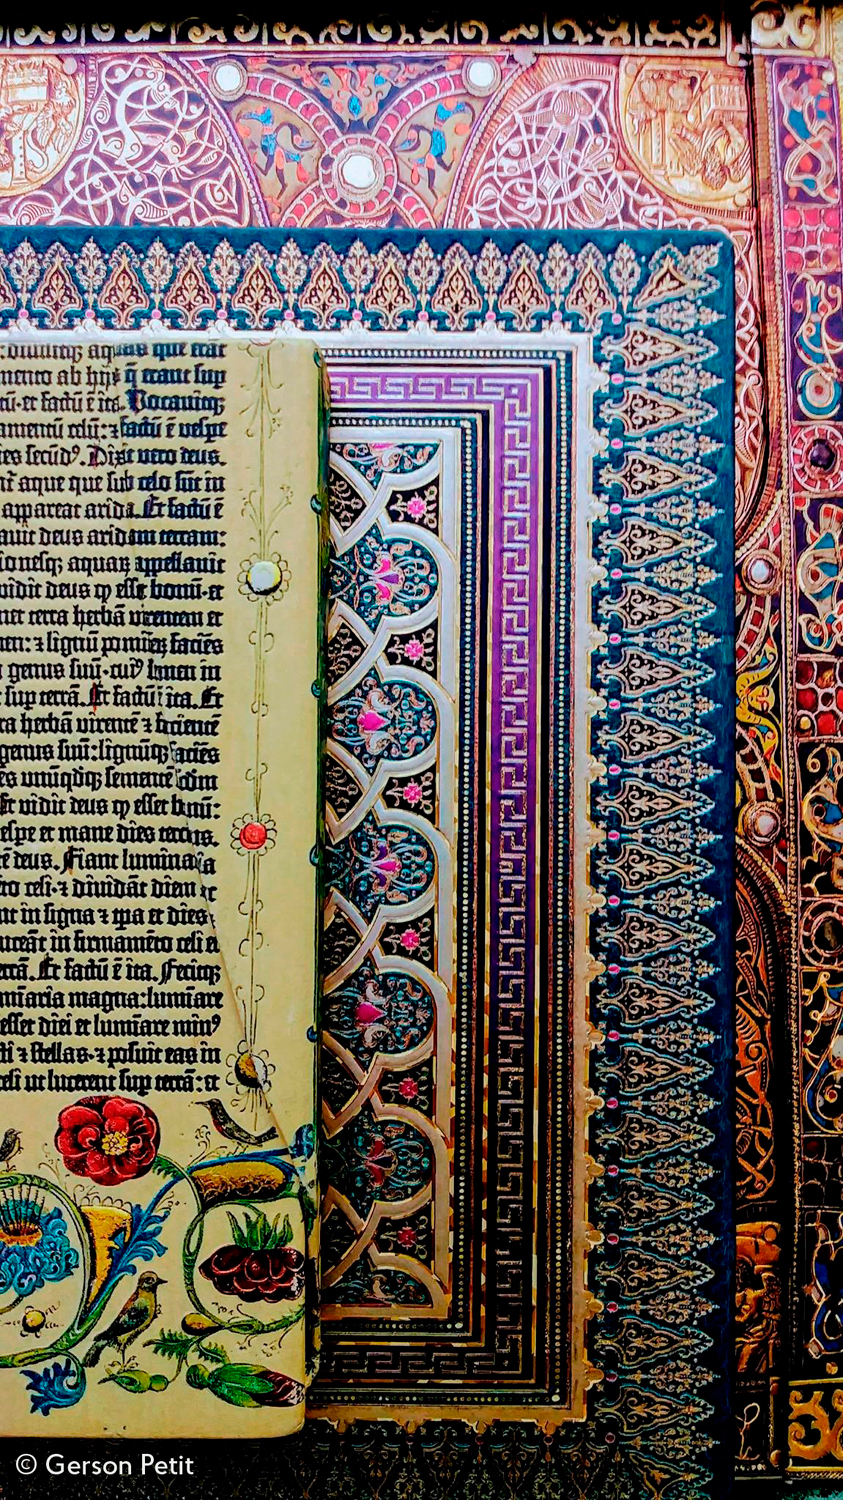 diuisitq; aquas que erāt
mento ab hijs q̄ erant sup
tū· et factū ē ita. Vocauitq;
amentū celū: ⁊ factū ē vespe
ies secūdꝰ. Dixit vero deus.
nt̄ aque que sub celo sūt in
appareat arida. Et factū ē
auit deus aridam terram:
ionesq; aquarū appellauit
vidit deus ꝙ esset bonū· et
net terra herbā virentem et
men: ⁊ lignū pomiferū faciēs
genus suū· cuiꝰ semen in
sup terrā. Et factū ē ita. Et
ra herbā virentē ⁊ facientē
genus suū: lignūq; faciēs
es unūqdq; sementē
Et vidit deus ꝙ esset bonū:
vespe et mane dies tercius.
tē deus. Fiant luminaria
to celi· ⁊ diuidāt diem ac
nt in signa ⁊ tpa et dies·
luceāt in firmamēto celi et
terrā. Et factū ē ita. Fecitq;
minaria magna: luminare
esset diei et luminare minꝰ
cti ⁊ stellas· ⁊ posuit eas in
celi ut lucerent sup terrā: et
© Gerson Petit